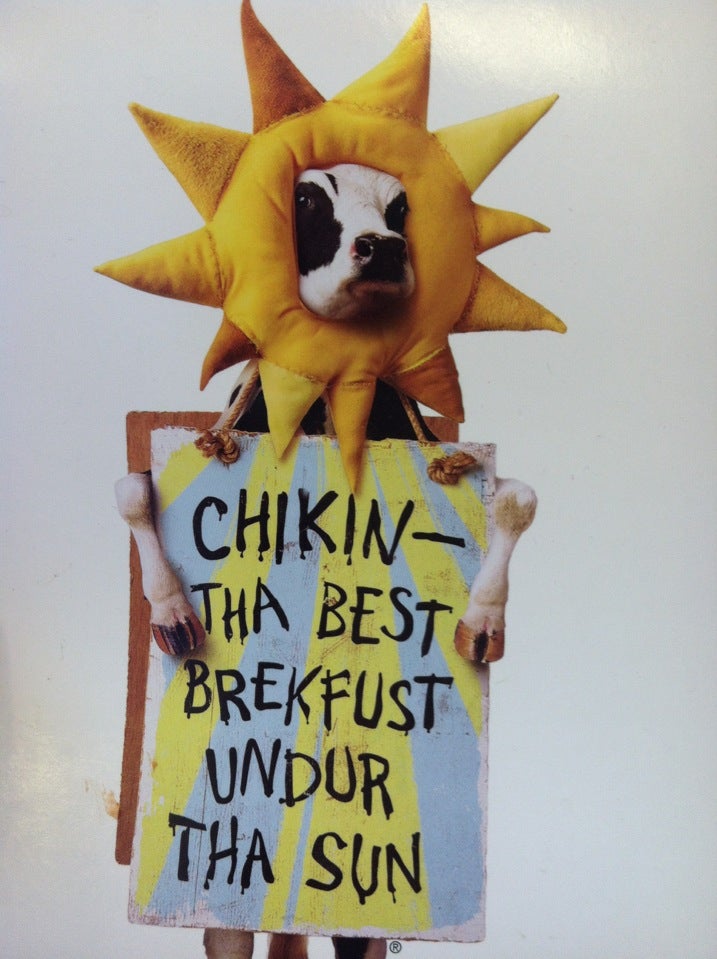 CHIKIN—
THA BEST
BREKFUST
UNDUR
THA SUN
®